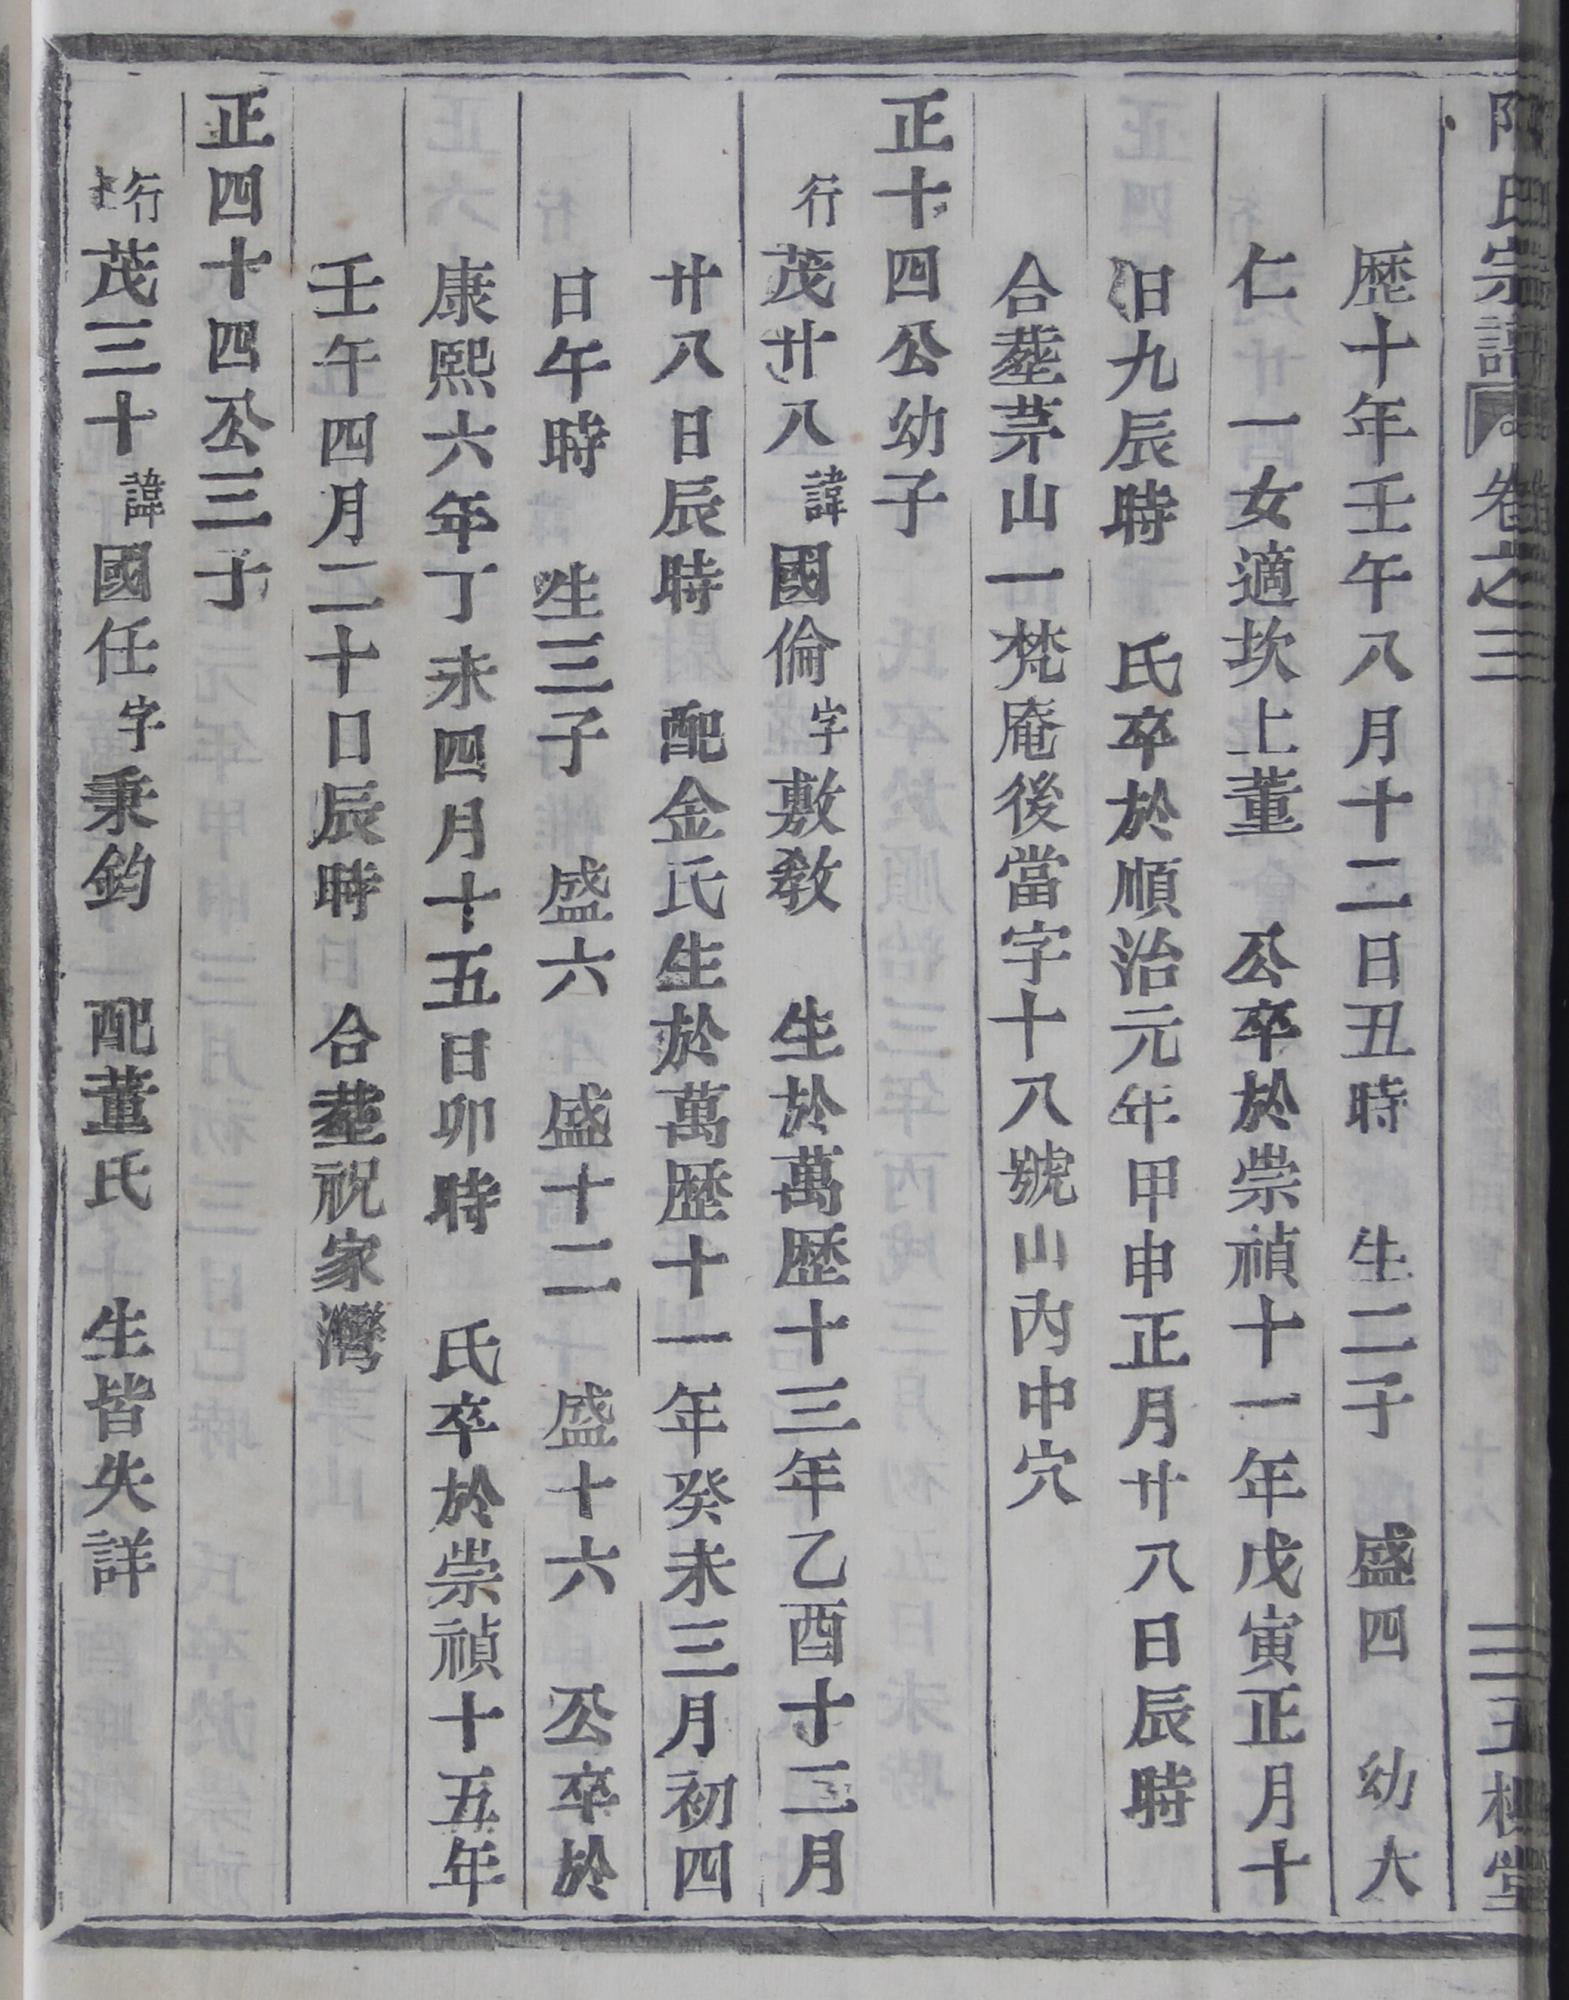 氏宗譜 卷之三 三 五桂堂
歴十年壬午八月十二日丑時 生二子 盛四 幼大
仁 一女適坎上董 公卒於崇禎十一年戊寅正月十
日九辰時 氏卒於順治元年甲申正月廿八日辰時
合塟茅山一梵庵後當字十八號山內中穴
正十四公幼子
行茂廿八諱國倫字敷敎 生於萬歴十三年乙酉十二月
廿八日辰時 配金氏生於萬歴十一年癸未三月初四
日午時 生三子 盛六 盛十二 盛十六 公卒於
康熙六年丁未四月十五日卯時 氏卒於崇禎十五年
壬午四月二十日辰時 合塟祝家灣
正四十四公三子
行茂三十諱國任字秉鈞 配董氏 生皆失詳